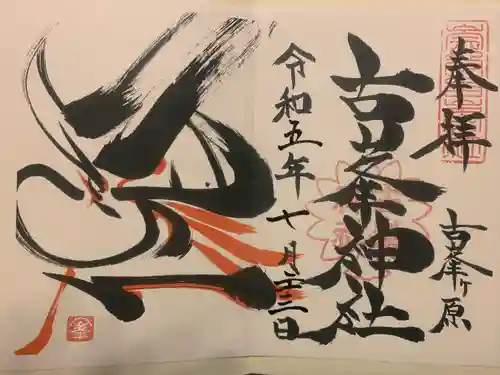 奉拝
古峯ヶ原
古峯神社
令和五年七月二十三日